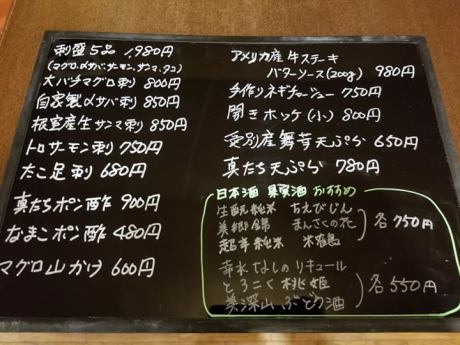 刺盛5品 1,980円
(マグロ、〆サバ、サーモン、サンマ、タコ)
大バチマグロ刺 800円
自家製〆サバ刺 850円
根室産生サンマ刺 850円
トロサーモン刺 750円
たこ足刺 680円
真たちポン酢 900円
なまこポン酢 480円
マグロ山かけ 600円
アメリカ産 牛ステーキ
バターソース(200g) 980円
手作りネギチャーシュー 750円
開きホッケ(小) 800円
愛別産舞茸天ぷら 650円
真たち天ぷら 780円
日本酒 果実酒 おすすめ
生酛純米 ちえびじん
美郷錦 まんさくの花
超辛純米
各750円
幸水なしのリキュール
とろこく桃姫
美深山ぶどう酒
各550円